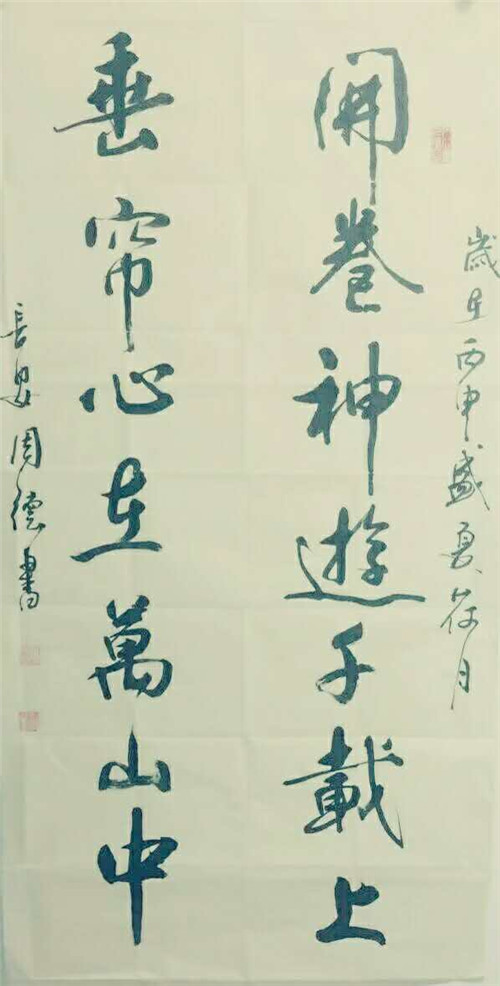 歲在丙申盛夏荷月
開卷神遊千載上
垂帘心在萬山中
長安周德書